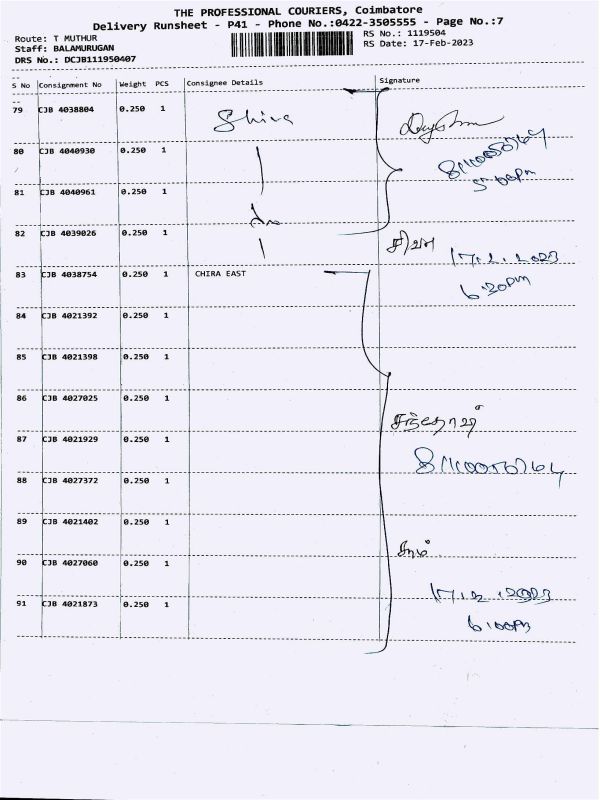 THE PROFESSIONAL COURIERS, Coimbatore
Delivery Runsheet - P41 - Phone No.:0422-3505555 - Page No.:7
Route: T MUTHUR
RS No.: 1119504
Staff: BALAMURUGAN
RS Date: 17-Feb-2023
DRS No.: DCJB111950407
S No Consignment No Weight PCS Consignee Details Signature
79 CJB 4038804 0.250 1 Shiva
80 CJB 4040930 0.250 1
5-00pm
81 CJB 4040961 0.250 1
82 CJB 4039026 0.250 1 சிவா
17.2.2023
83 CJB 4038754 0.250 1 CHIRA EAST
6.20pm
84 CJB 4021392 0.250 1
85 CJB 4021398 0.250 1
86 CJB 4027025 0.250 1
87 CJB 4021929 0.250 1
88 CJB 4027372 0.250 1
89 CJB 4021402 0.250 1
90 CJB 4027060 0.250 1
91 CJB 4021873 0.250 1
17.2.2023
6.00pm